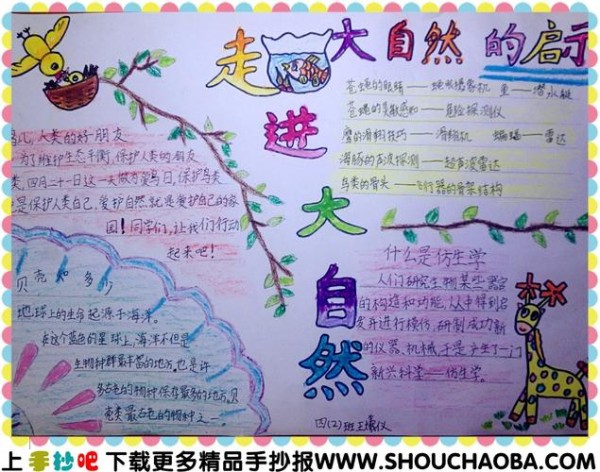 走进大自然
大自然的启示
苍蝇的眼睛——蝇眼摄像机 鱼——潜水艇
苍蝇的嗅觉感知——危险探测仪
鹰的滑翔技巧——滑翔机 蝙蝠——雷达
海豚的声波探测——超声波雷达
鸟类的骨头——飞行器的骨架结构
鸟儿,人类的好朋友
为了维护生态平衡,保护人类的朋友
类,四月二十一日这一天做为爱鸟日,保护鸟类
是保护人类自己,爱护自然就是爱护自己的家
园!同学们,让我们行动
起来吧!
什么是仿生学
人们研究生物某些器官
的构造和功能,从中得到启
发并进行模仿,研制成功新
的仪器、机械,于是产生了一门
新兴科学——仿生学。
贝壳知多少
地球上的生命起源于海洋。
在这个蓝色的星球上,海洋不但是
生物种群最丰富的地方,也是许
多古老的物种保存最多的地方,贝
壳类最古老的物种之一。
四(2)班王
仪
上手抄吧 下载更多精品手抄报WWW.SHOUCHAOBA.COM